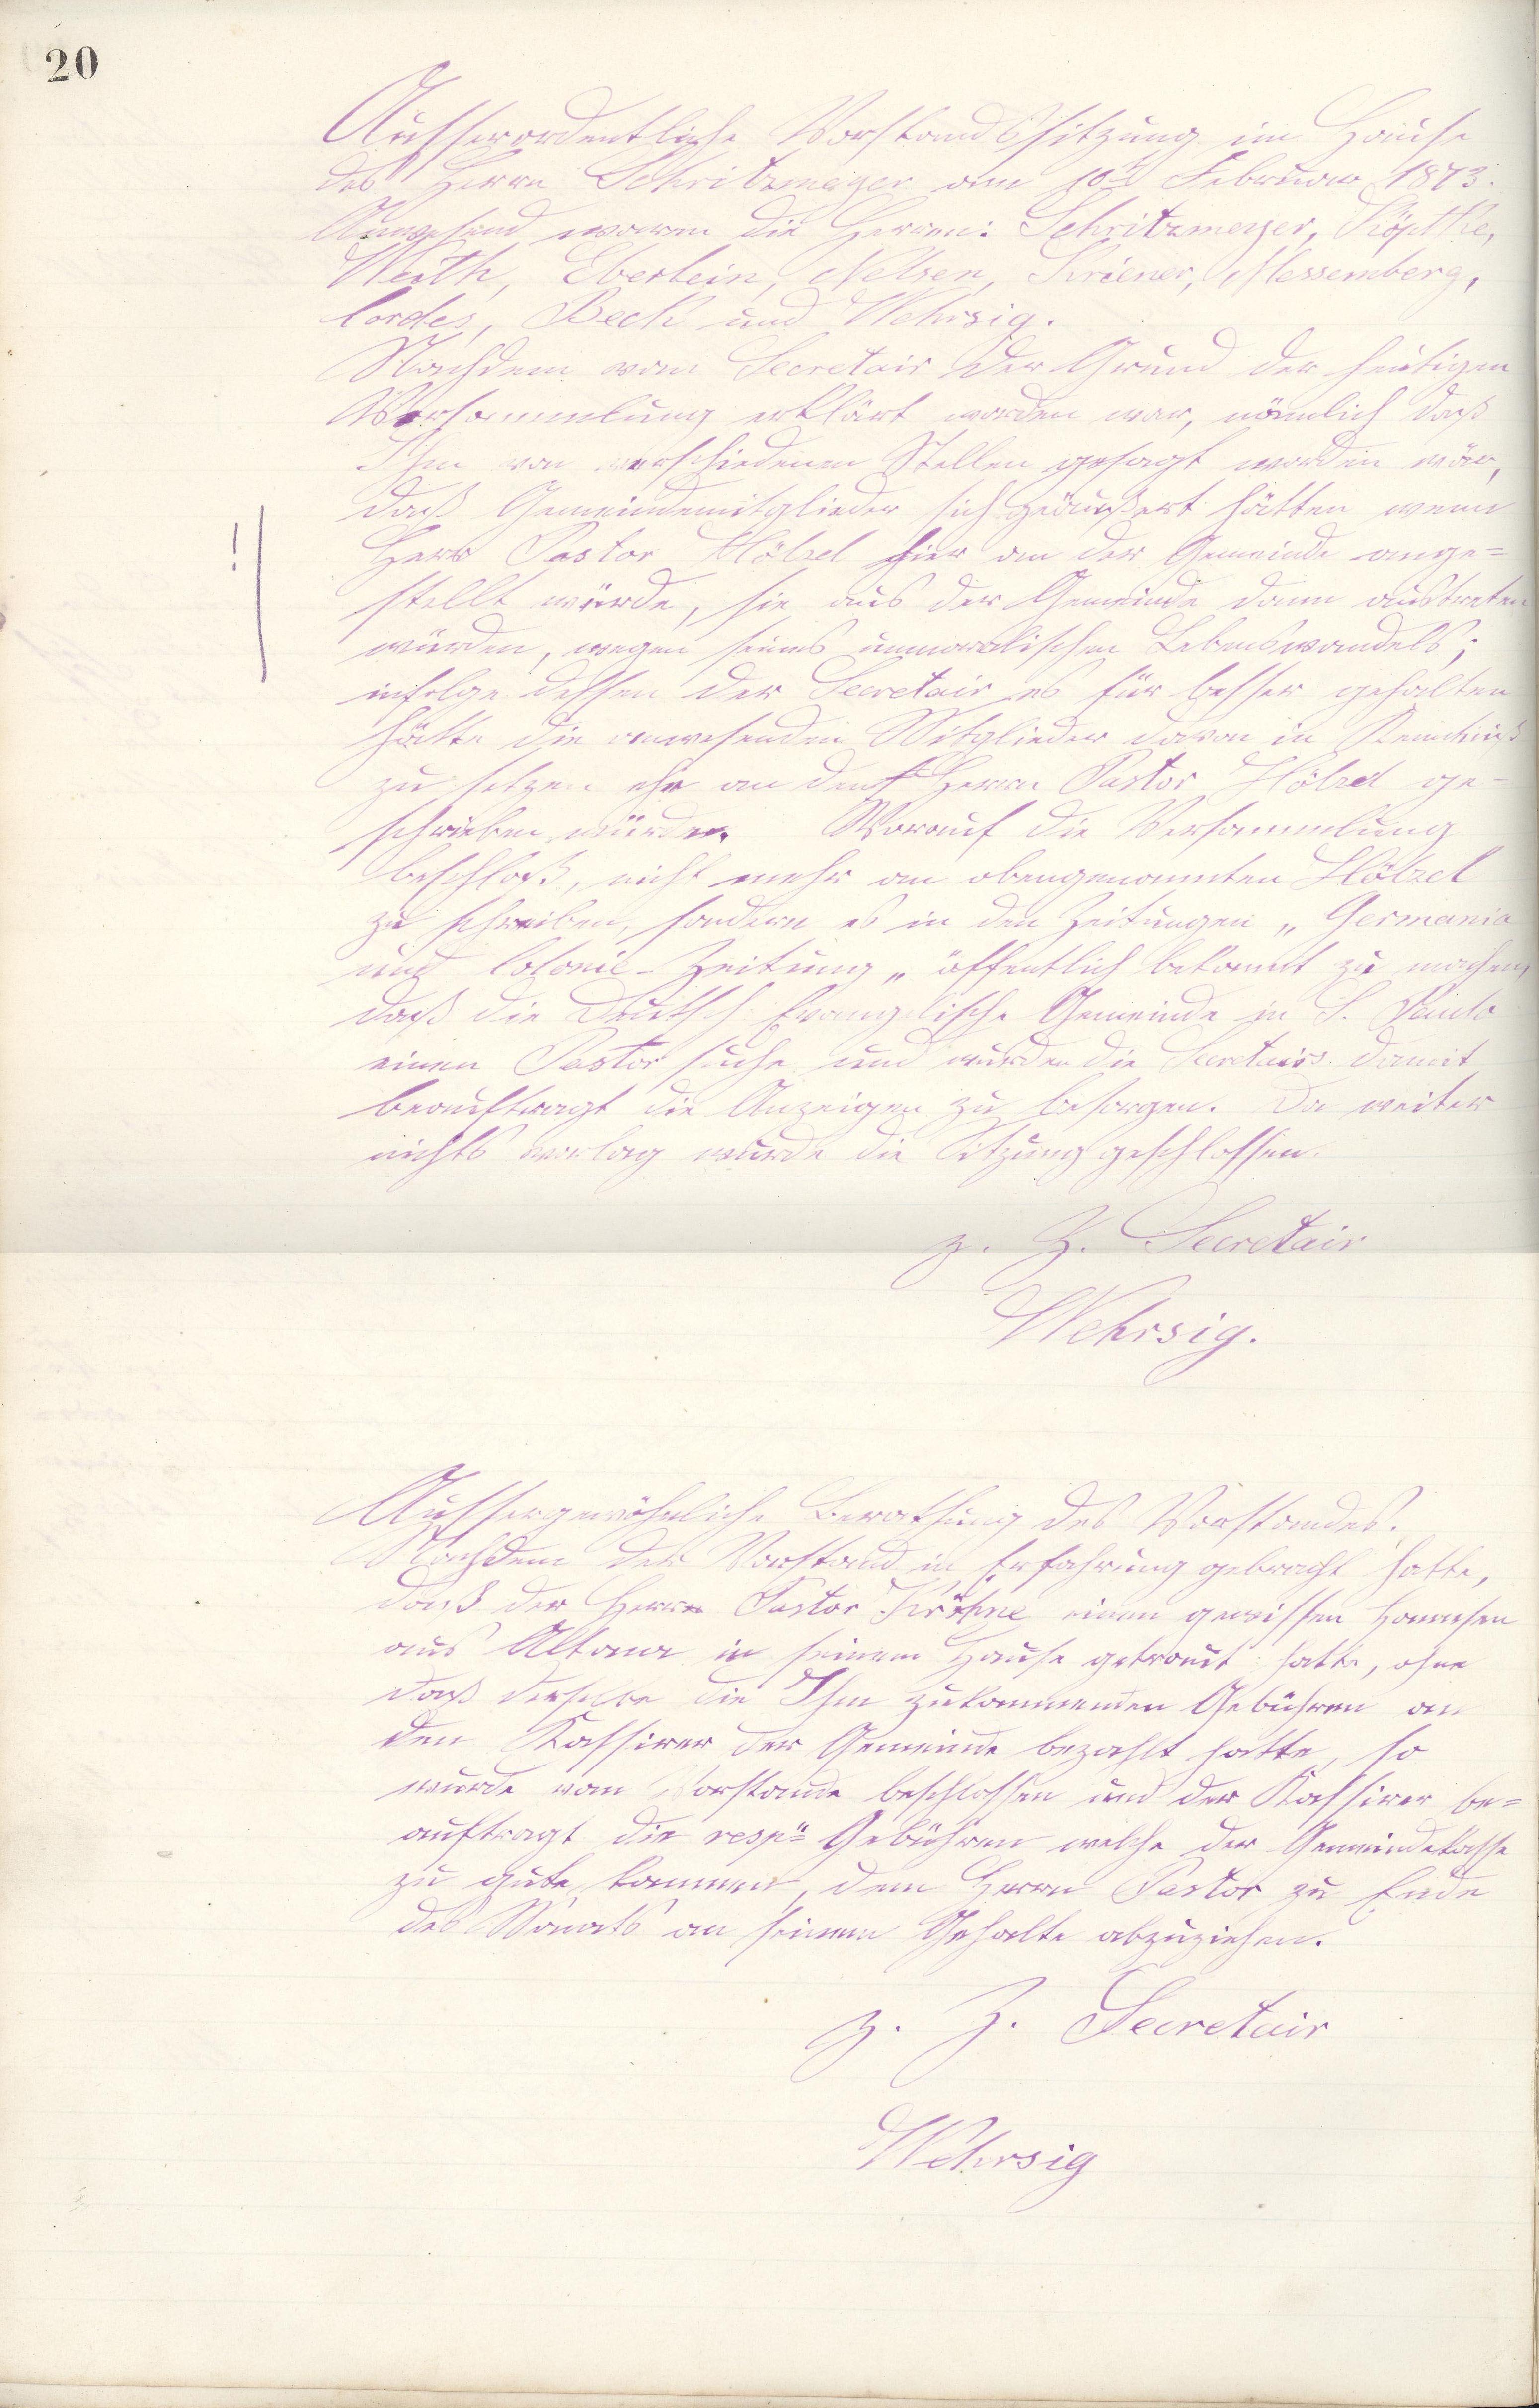 20
Ausserordentliche Vorstandssitzung im Hause
des Herrn Schritzmeyer am 10t Februar 1873.
Anwesend waren die Herren: Schritzmeyer, Köpthe,
Werth, Eberlein, Nelsen, Kriener, Messemberg,
Cordes, Beck und Wehrsig.
Nachdem vom Secretair der Grund der heutigen
Versammlung erklärt worden war, nämlich daß
Ihm von verschiedenen Stellen gesagt worden wär,
daß Gemeindemitglieder sich geäußert hätten wenn
! Herr Pastor Hölzel hier an der Gemeinde ange=
stellt würde, sie aus der Gemeinde dann austreten
würden, wegen seines unmoralischen Lebenswandels;
infolge dessen der Secretair es für besser gehalten
hätte die anwesenden Mitglieder davon in Kenntniß
zu setzen ehe an den Herrn Pastor Hölzel ge-
schrieben würde. Worauf die Versammlung
beschloß, nicht mehr an obengenannten Hölzel
zu schreiben, sondern es in den Zeitungen „Germania
und Colonie-Zeitung„ öffentlich bekannt zu machen,
daß die Deutsch Evangelische Gemeinde in S. Paulo
einen Pastor suche und wurden die Secretairs damit
beauftragt die Anzeigen zu besorgen. Da weiter
nichts vorlag wurde die Sitzung geschlossen.
z. Z. Secretair
Wehrsig.
Aussergewöhnliche Berathung des Vorstandes.
Nachdem der Vorstand in Erfahrung gebracht hatte,
daß der Herr Pastor Kröhne einen gewissen Hannsen
aus Altona in seinem Hause getraut hatte, ohne
daß derselbe die Ihm zukommenden Gebühren an
den Kassirer der Gemeinde bezahlt hatte, so
wurde vom Vorstande beschlossen und der Kassirer be=
auftragt die resp. Gebühren welche der Gemeindekasse
zu gute kommen, dem Herrn Pastor zu Ende
des Monats an seinem Gehalte abzuziehen.
z. Z. Secretair
Wehrsig